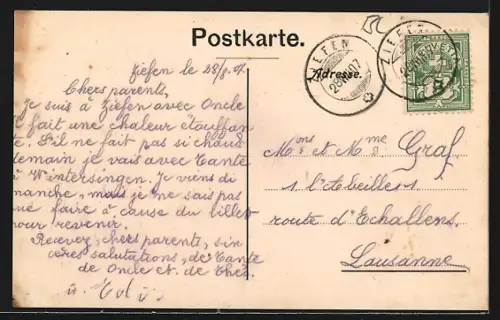 Postkarte.
Adresse.
ZIEFEN
ZIEFEN
Ziefen le 28/8.07.
Chers parents,
Je suis à Ziefen avec Oncle
il fait une chaleur étouffan
te. S'il ne fait pas si chaud
demain je vais avec Tante
à Wintersingen. Je viens di
manche, mais je ne sais pas
que faire à cause du billet
pour revenir.
Recevez, chers parents, sin
cères salutations, de Tante
de Oncle et de
Mons et Mme Graf
route d'Echallens
Lausanne